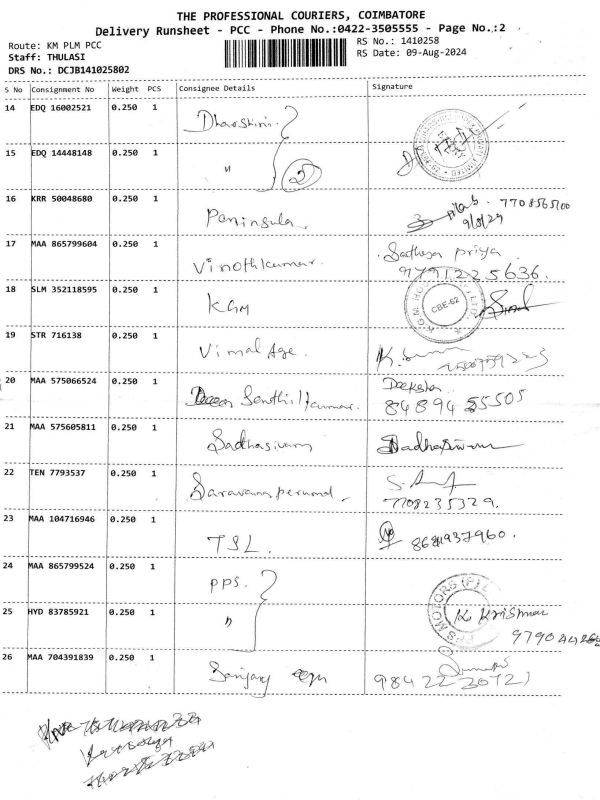 THE PROFESSIONAL COURIERS, COIMBATORE
Delivery Runsheet - PCC - Phone No.:0422-3505555 - Page No.:2
Route: KM PLM PCC RS No.: 1410258
Staff: THULASI RS Date: 09-Aug-2024
DRS No.: DCJB141025802
S No Consignment No Weight PCS Consignee Details Signature
14 EDQ 16002521 0.250 1 Dharshini
15 EDQ 14448148 0.250 1 " 2
16 KRR 50048680 0.250 1 Peninsula. 7708565100
9/8/24
17 MAA 865799604 0.250 1 Vinothkumar. Sathya priya
9791225636.
18 SLM 352118595 0.250 1 KGM CBE-62
19 STR 716138 0.250 1 Vimal Age.
20 MAA 575066524 0.250 1 Senthilkumar. Deeksha
84894 55505
21 MAA 575605811 0.250 1 Sadhasivam Sadhasivam
22 TEN 7793537 0.250 1 Saravanaperumal.
7708235329.
23 MAA 104716946 0.250 1 TSL. 8681937960.
24 MAA 865799524 0.250 1 PPS.
25 HYD 83785921 0.250 1 " PPS MOTORS (P) K. Krishna
26 MAA 704391839 0.250 1 Sanjay